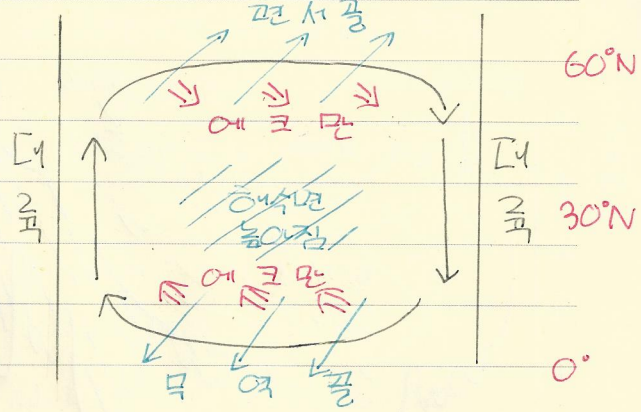 편서풍
60°N
에크만
대륙
대륙
해수면
높아짐
30°N
에크만
무역풍
0°